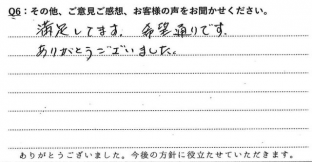 Q6：その他、ご意見ご感想、お客様の声をお聞かせください。
満足してます。希望通りです。
ありがとうございました。
ありがとうございました。今後の方針に役立たせていただきます。